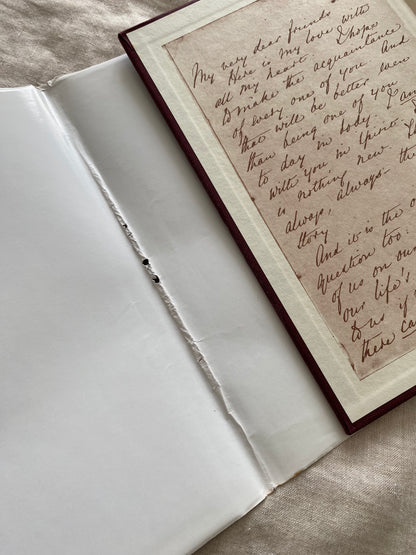 My very dear friends
Here is my love with
all my heart. I hope
to make the acquaintance
of every one of you. And
that will be better even
than being one of you
to day in body. I am
with you in spirit.
is nothing new.
always, always- th
story
And it is the o
question too:
of us on our
our life's
to us if
there ca